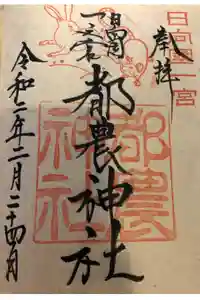 日向国一宮
奉拝
日向国
一之宮
都農神社
都農
神社
令和二年二月二十四日